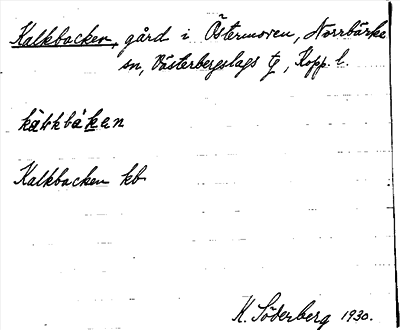 Kalkbacken, gård i Östermoren, Norrbärke
sn, Västerbergslags tg, Kopp. l.
Kalkbacken kb
K. Söderberg 1930.